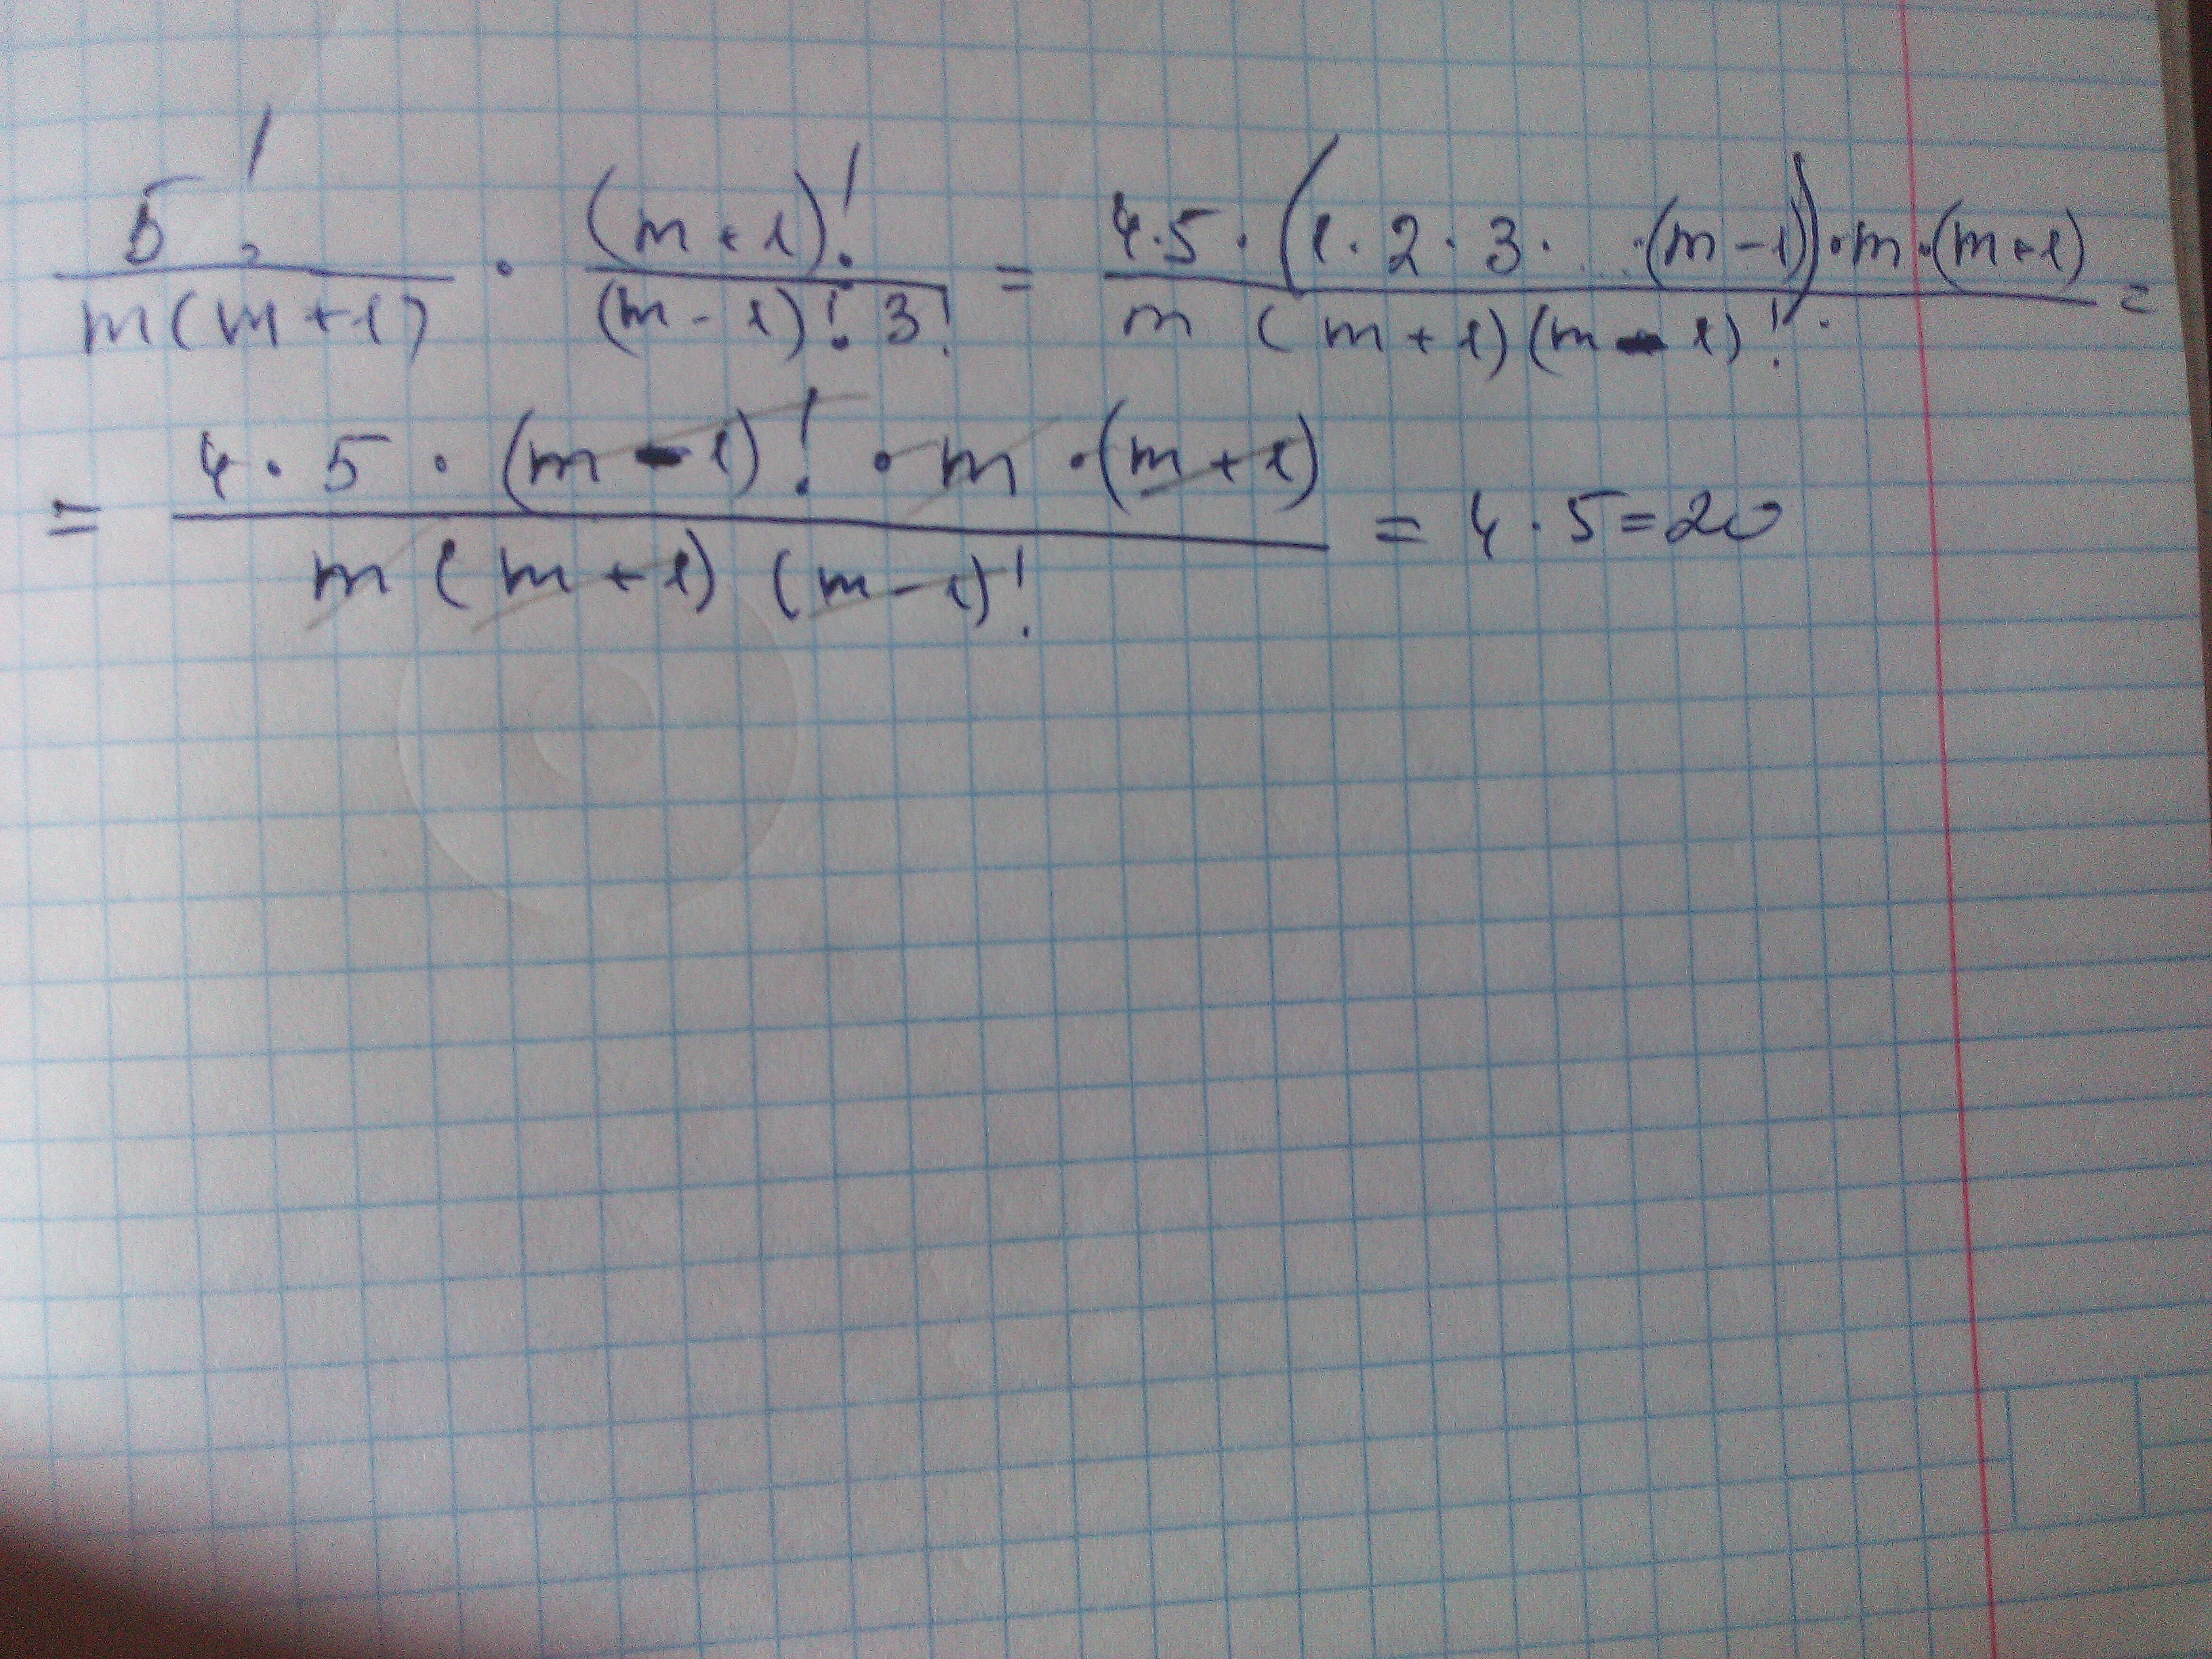 5!/(m(m+1)) · (m+1)!/((m-1)! 3!) = 4·5·(1·2·3·...·(m-1))·m·(m+1)/(m(m+1)(m-1)!) =
= 4·5·(m-1)!·m·(m+1)/(m(m+1)(m-1)!) = 4·5=20